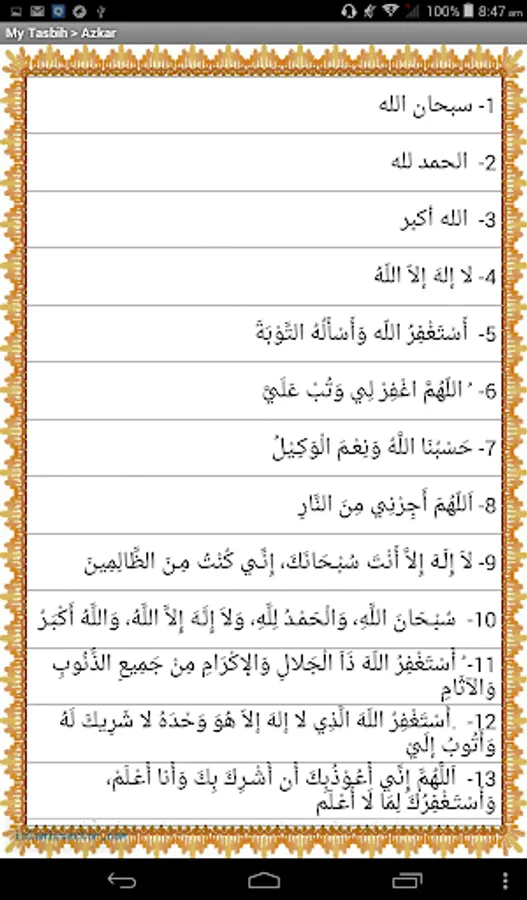 100% 8:47 am
My Tasbih > Azkar
1- سبحان الله
2- الحمد لله
3- الله أكبر
4- لا إلهَ إلاّ اللّهُ
5- أَسْتَغْفِرُ اللّه وَأَسْأَلُهُ التَّوْبَةَ
6- ُ اللّهُمَّ اغْفِرْ لِي وَتُبْ عَلَيَّ
7- حَسْبُنَا اللَّهُ وَنِعْمَ الْوَكِيْلُ
8- اَللّهُمَ أَجِرْنِي مِنَ النَّارِ
9- لاَ إِلَهَ إِلاَّ أَنْتَ سُبْحَانَكَ، إِنَّي كُنْتُ مِنَ الظَّالِمِينَ
10- سُبْحَانَ اللَّهِ، وَالْحَمْدُ لِلَّهِ، وَلاَ إِلَهَ إِلاَّ اللَّهُ، وَاللَّهُ أَكْبَرُ
11- ُ أَسْتَغْفِرُ اللّهَ ذَاَ الْجَلالِ وَالإكْرَامِ مِنْ جَمِيعِ الذُّنُوبِ
وَالآثَامِ
12- .أَسْتَغْفِرُ اللّهَ الَّذِي لا إلهَ إلاّ هُوَ وَحْدَهُ لا شَرِيكَ لَهُ
وَأَتُوبُ إلَيْ
13- اَللَّهُمَّ إِنَّي أَعُوْذُبِكَ أَن أُشْرِكَ بِكَ وَأَنا أَعْلَمْ،
وَأَسْتَغْفِرُكَ لِمَا لَا أَعْلَم